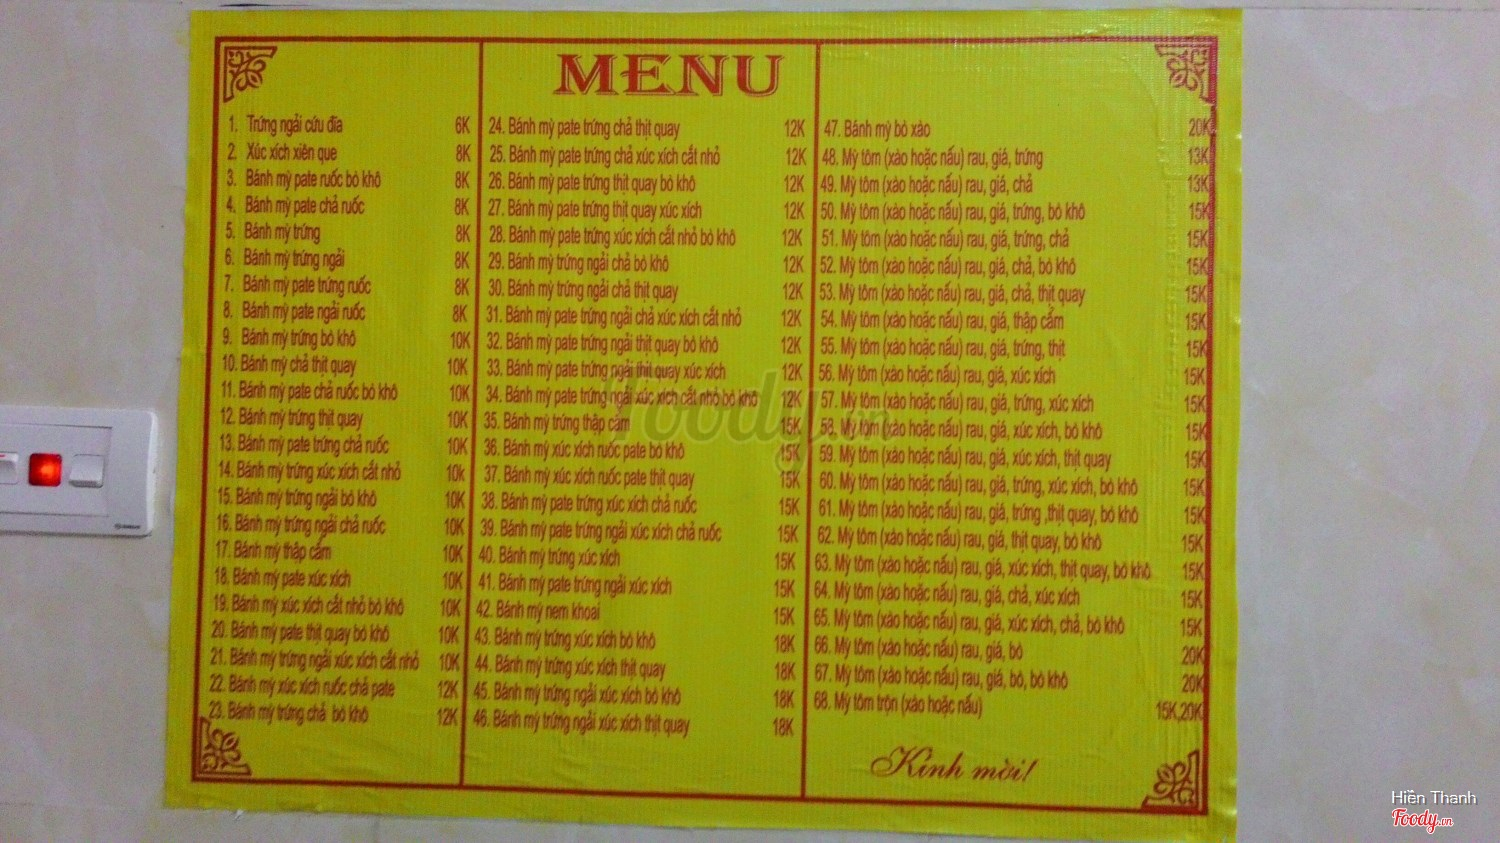 MENU
1. Trứng ngải cứu đĩa 6K
2. Xúc xích xiên que 8K
3. Bánh mỳ pate ruốc bò khô 8K
4. Bánh mỳ pate chả ruốc 8K
5. Bánh mỳ trứng 8K
6. Bánh mỳ trứng ngải 8K
7. Bánh mỳ pate trứng ruốc 8K
8. Bánh mỳ pate ngải ruốc 8K
9. Bánh mỳ trứng bò khô 10K
10. Bánh mỳ chả thịt quay 10K
11. Bánh mỳ pate chả ruốc bò khô 10K
12. Bánh mỳ trứng thịt quay 10K
13. Bánh mỳ pate trứng chả ruốc 10K
14. Bánh mỳ trứng xúc xích cắt nhỏ 10k
15. Bánh mỳ trứng ngải bò khô 10K
16. Bánh mỳ trứng ngải chả ruốc 10K
17. Bánh mỳ thập cẩm 10K
18. Bánh mỳ pate xúc xích 10K
19. Bánh mỳ xúc xích cắt nhỏ bò khô 10K
20. Bánh mỳ pate thịt quay bò khô 10K
21. Bánh mỳ trứng ngải xúc xích cắt nhỏ 10K
22. Bánh mỳ xúc xích ruốc chả pate 12K
23. Bánh mỳ trứng chả bò khô 12K
24. Bánh mỳ pate trứng chả thịt quay 12K
25. Bánh mỳ pate trứng chả xúc xích cắt nhỏ 12K
26. Bánh mỳ pate trứng thịt quay bò khô 12K
27. Bánh mỳ pate trứng thịt quay xúc xích 12K
28. Bánh mỳ pate trứng xúc xích cắt nhỏ bò khô 12K
29. Bánh mỳ trứng ngải chả bò khô 12K
30. Bánh mỳ trứng ngải chả thịt quay 12K
31. Bánh mỳ pate trứng ngải chả xúc xích cắt nhỏ 12K
32. Bánh mỳ pate trứng ngải thịt quay bò khô 12K
33. Bánh mỳ pate trứng ngải thịt quay xúc xích 12K
34. Bánh mỳ pate trứng ngải xúc xích cắt nhỏ bò khô 12K
35. Bánh mỳ trứng thập cẩm 15K
36. Bánh mỳ xúc xích ruốc pate bò khô 15K
37. Bánh mỳ xúc xích ruốc pate thịt quay 15K
38. Bánh mỳ pate trứng xúc xích chả ruốc 15K
39. Bánh mỳ pate trứng ngải xúc xích chả ruốc 15K
40. Bánh mỳ trứng xúc xích 15K
41. Bánh mỳ pate trứng ngải xúc xích 15K
42. Bánh mỳ nem khoai 15K
43. Bánh mỳ trứng xúc xích bò khô 18K
44. Bánh mỳ trứng xúc xích thịt quay 18K
45. Bánh mỳ trứng ngải xúc xích bò khô 18K
46. Bánh mỳ trứng ngải xúc xích thịt quay 18K
47. Bánh mỳ bò xào 20K
48. Mỳ tôm (xào hoặc nấu) rau, giá, trứng 13K
49. Mỳ tôm (xào hoặc nấu) rau, giá, chả 13K
50. Mỳ tôm (xào hoặc nấu) rau, giá, trứng, bò khô 15K
51. Mỳ tôm (xào hoặc nấu) rau, giá, trứng, chả 15K
52. Mỳ tôm (xào hoặc nấu) rau, giá, chả, bò khô 15K
53. Mỳ tôm (xào hoặc nấu) rau, giá, chả, thịt quay 15K
54. Mỳ tôm (xào hoặc nấu) rau, giá, thập cẩm 15K
55. Mỳ tôm (xào hoặc nấu) rau, giá, trứng, thịt 15K
56. Mỳ tôm (xào hoặc nấu) rau, giá, xúc xích 15K
57. Mỳ tôm (xào hoặc nấu) rau, giá, trứng, xúc xích 15K
58. Mỳ tôm (xào hoặc nấu) rau, giá, xúc xích, bò khô 15K
59. Mỳ tôm (xào hoặc nấu) rau, giá, xúc xích, thịt quay 15K
60. Mỳ tôm (xào hoặc nấu) rau, giá, trứng, xúc xích, bò khô 15K
61. Mỳ tôm (xào hoặc nấu) rau, giá, trứng ,thịt quay, bò khô 15K
62. Mỳ tôm (xào hoặc nấu) rau, giá, thịt quay, bò khô 15K
63. Mỳ tôm (xào hoặc nấu) rau, giá, xúc xích, thịt quay, bò khô 15K
64. Mỳ tôm (xào hoặc nấu) rau, giá, chả, xúc xích 15K
65. Mỳ tôm (xào hoặc nấu) rau, giá, xúc xích, chả, bò khô 15K
66. Mỳ tôm (xào hoặc nấu) rau, giá, bò 20K
67. Mỳ tôm (xào hoặc nấu) rau, giá, bò, bò khô 20K
68. Mỳ tôm trộn (xào hoặc nấu) 15K,20K
Kính mời!
Foody.vn
Hiền Thanh
Foody.vn